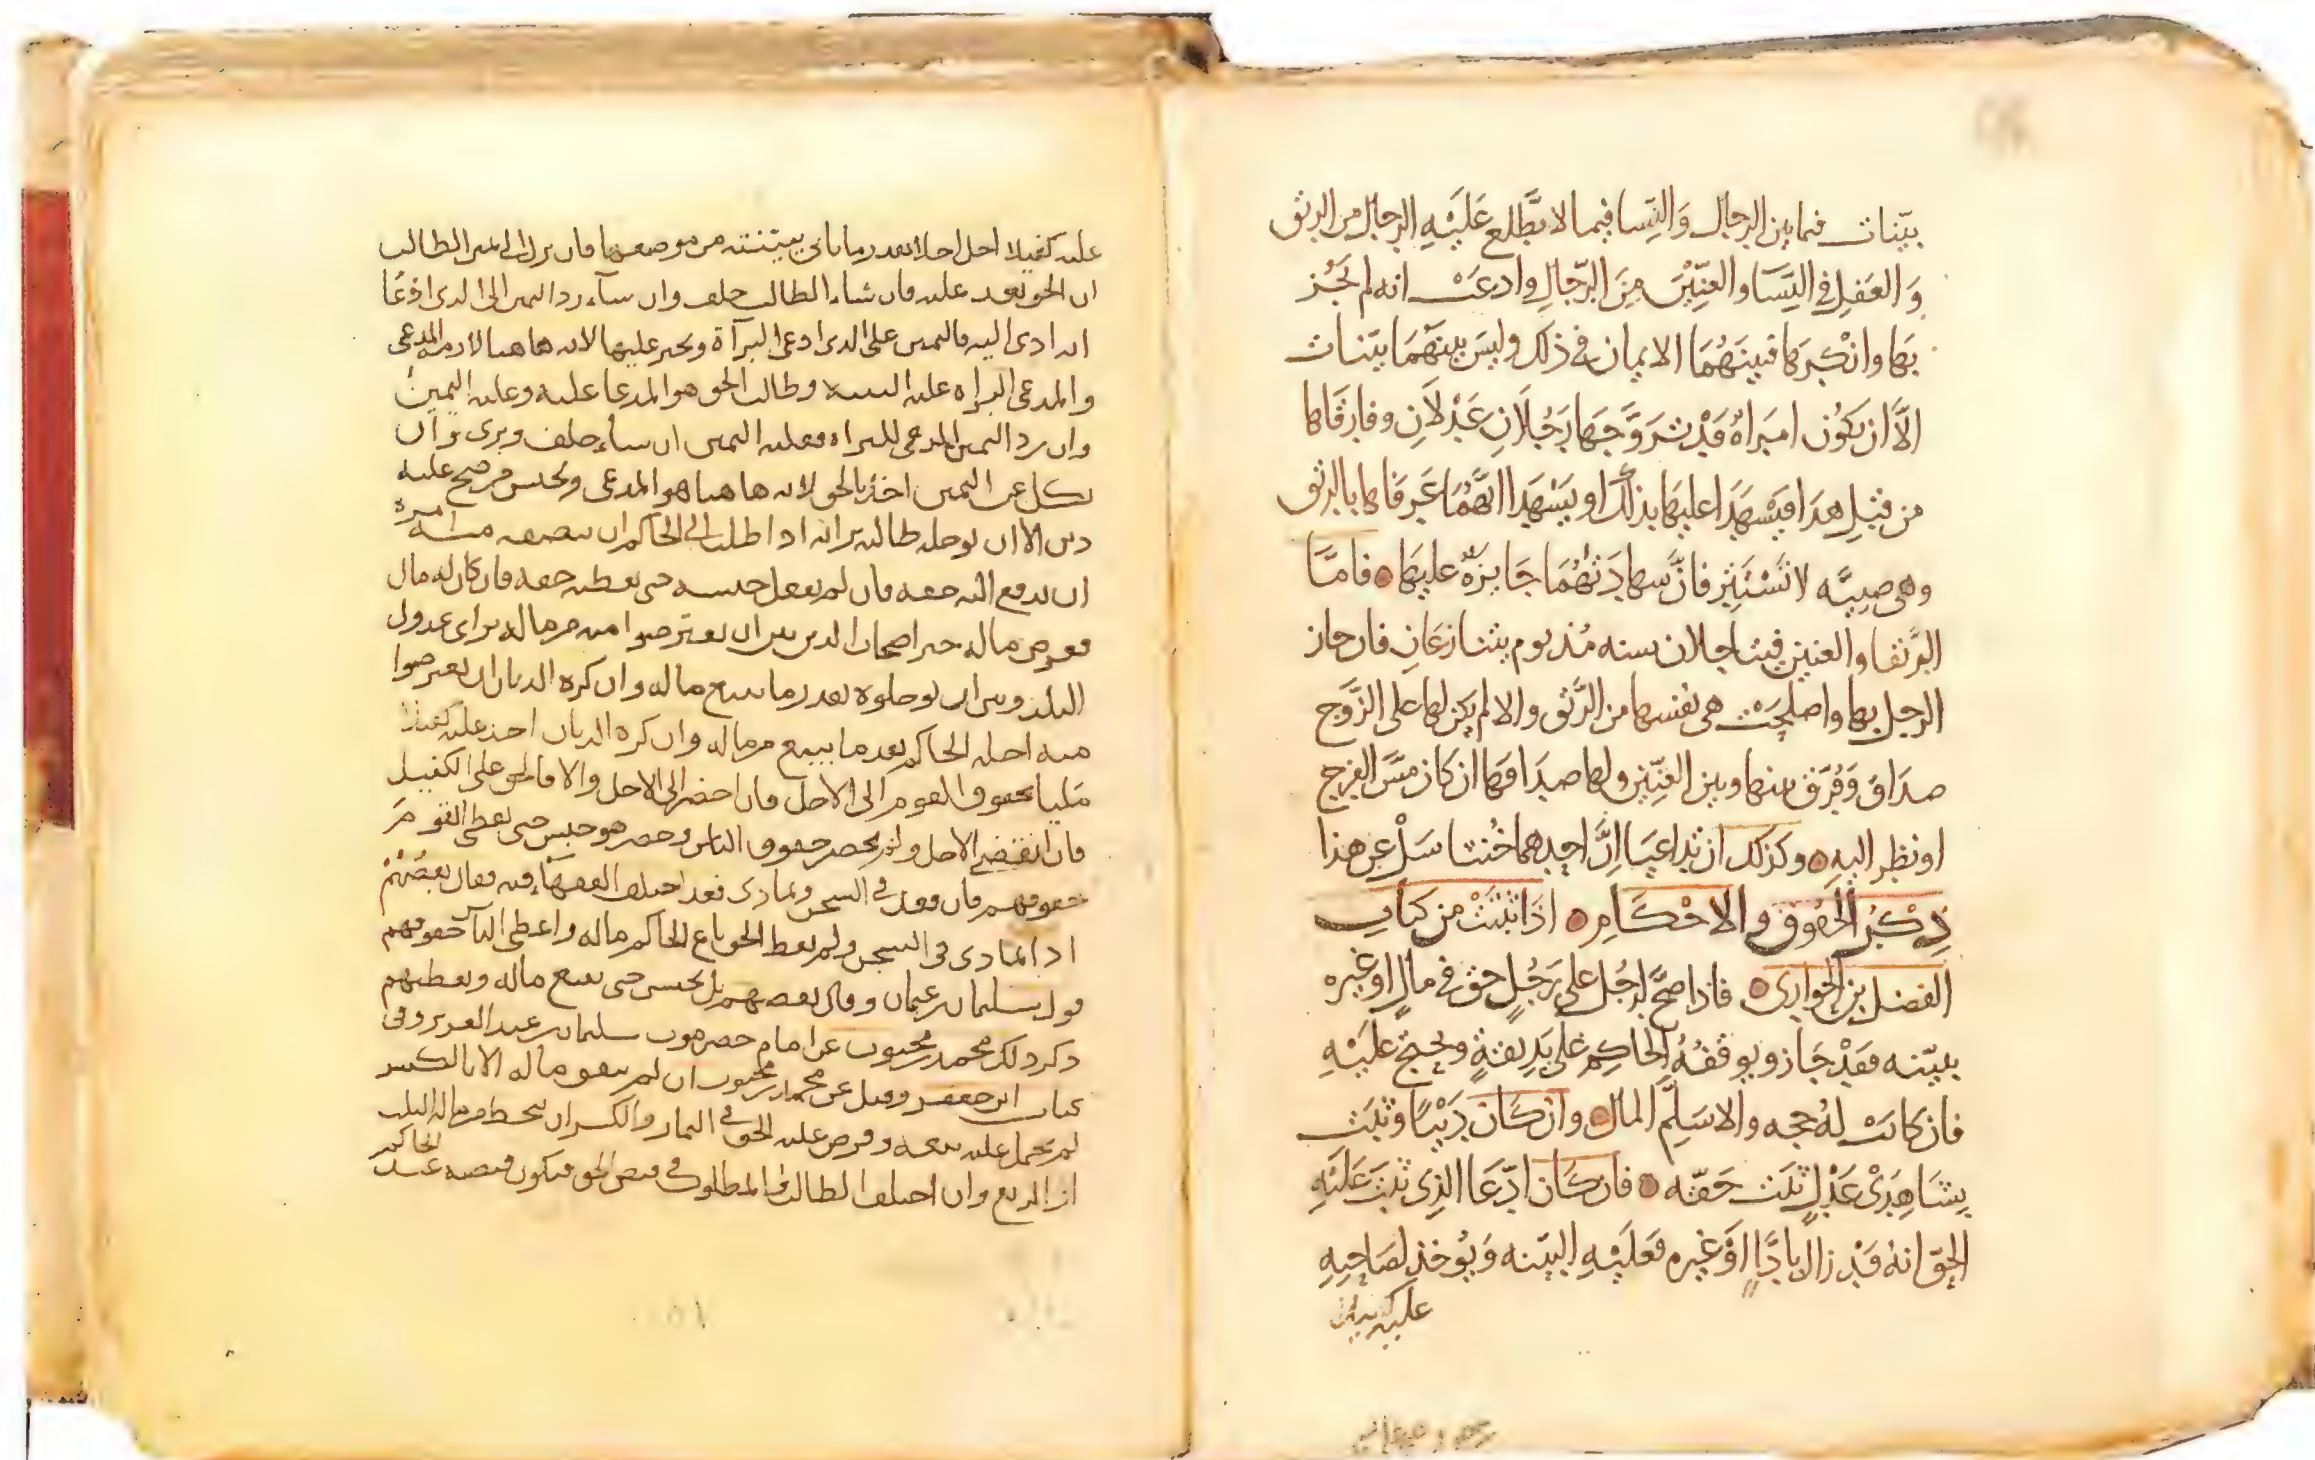 بينات فما بين الرجال والنسا فيما لا يطلع عليه الرجال من الرتق
والعفل في النسآ والعنين من الرجال وادعت انه لم يجز
بها وانكرها فبينهما الايمان في ذلك وليس بينهما بينات
الا ان يكون امراة قد تزوجها رجلان عدلان وفارقاها
من قبل هذا فيشهدا عليها بذلك او يشهدا انهما عرفاها بالرتق
وهي صبيه لا تستتر فان شهادتهما جايزة عليها فاما
الرتقا والعنين فيتاجلان سنه مذ يوم يتنازعان فان جاز
الرجل بها واصلحت هي نفسها من الرتق والا لم يكن لها على الزوج
صداق وفرق بينها وبين العنين ولها صداقها ان كان مس الفرج
او نظر اليه وكذلك ان تداعيا ان احدهما خنثا سل عن هذا
ذكر الحقوق والاحكام اذا ثبتت من كتاب
الفضل بن الحواري فاذا صح لرجل على رجل حق في مال او غيره
ببينه فقد جاز ويوقفه الحاكم على يديه ويحتج عليه
فان كانت له حجه والا سلم المال وان كان دينا وثبت
بشاهدي عدل ثبت حقه فان كان ادعا الذي ثبت عليه
الحق انه قد زال باداٍ او غيره فعليه البينه ويوخذ لصاحبه
عليه
عليه كفيلا اجل اجلا بعد رما ياتي ببينته من موضعها فان نزل الى يمين الطالب
ان الحق بعد عليه فان شاء الطالب حلف وان شآء رد اليمين الى الذي ادعا
انه ادى اليه فاليمين على الذي ادعى البرآة ويجبر عليها لانه هاهنا المدعى
والمدعي البراه عليه البينه وطالب الحق هو المدعا عليه وعليه اليمين
وان رد اليمين المدعي للبراه فعليه اليمين ان شاء حلف وبرى وان
نكل عن اليمين اخذ بالحق لانه هاهنا هو المدعي ويحبس من صح عليه
دين الا ان يوجله طالبه برايه اذا طلب الى الحاكم ان ينصفه منه امره
ان يدفع اليه حقه فان لم يفعل حبسه حتى يعطيه حقه فان كان له مال
فعرض ماله خير اصحاب الدين بين ان يعترضوا منه من ماله براي عدول
البلد وبين ان يوجلوه بقدر ما يبيع ماله وان كره الديان ان يعترضوا
منه اجله الحاكم بقدر ما يبيع من ماله وان كره الديان اخذ عليه كفيلا
مليا بحقوق القوم الى الاجل فان احضر الى الاجل والا فالحق على الكفيل
فان انقضى الاجل ولم يحضر حقوق الناس وحضر هو حبس حتى يعطي القوم
حقوقهم فان قعد في السجن وتمادى فقد اختلف الفقهاء فيه فقال بعضهم
اذا تمادى في السجن ولم يعط الحق باع الحاكم ماله واعطى الناس حقوقهم
قول سليمان بن عثمان وقال بعضهم بل يحبس حتى يبيع ماله ويعطيهم
ذكر ذلك محمد بن محبوب عن امام حضرموت سليمان بن عبد العزيز وفي
كتاب ابن جعفر وقيل عن محمد بن محبوب ان لم ينفق ماله الا بالكسر
لم يحمل عليه بيعه وفرض عليه الحق في الثمار والكسر ان ينحط من ماله الثلث
او الربع وان اختلف الطالب والمطلوب في قبض الحق فيكون قبضه عند الحاكم